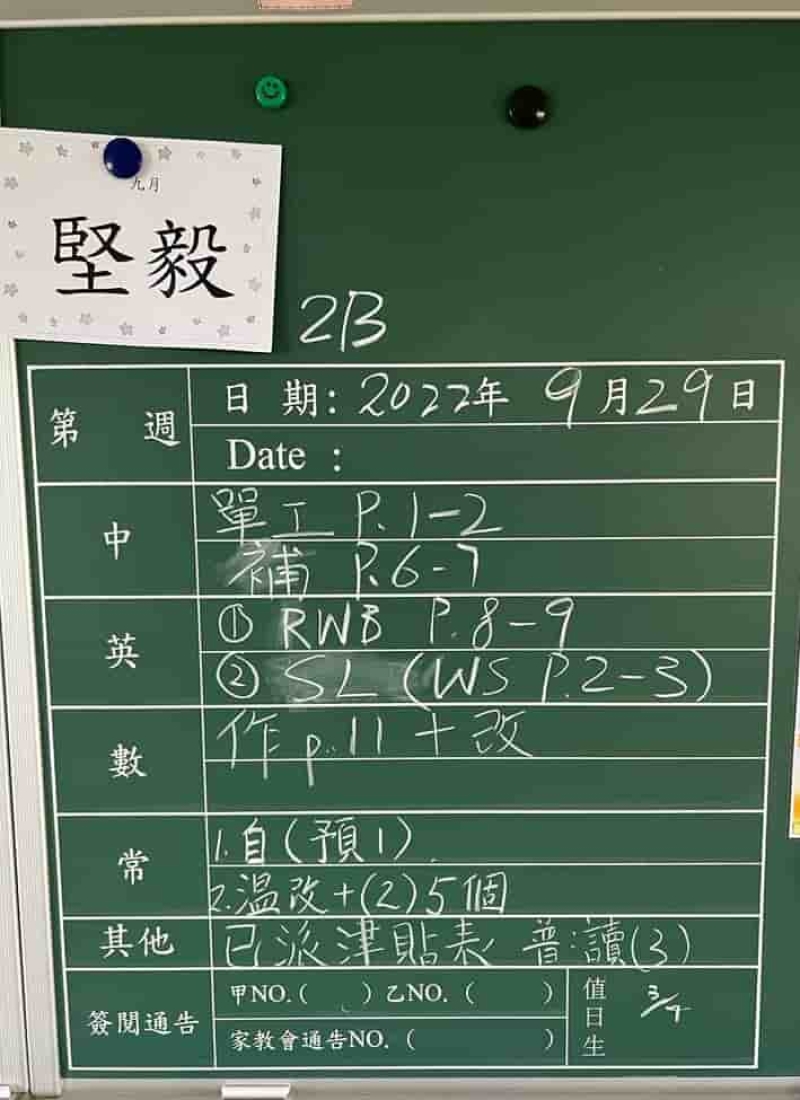 九月
堅毅
2B
第 週
日 期：2022年 9月29日
Date :
中
單工 P.1-2
補 P.6-7
英
① RWB P.8-9
② SL (WS P.2-3)
數
作 p.11 + 改
常
1.自(預1)
2.溫改+(2)5個
其他
已派津貼表 普:讀(3)
簽閱通告
甲NO.( ) 乙NO.( )
家教會通告NO.( )
值日生